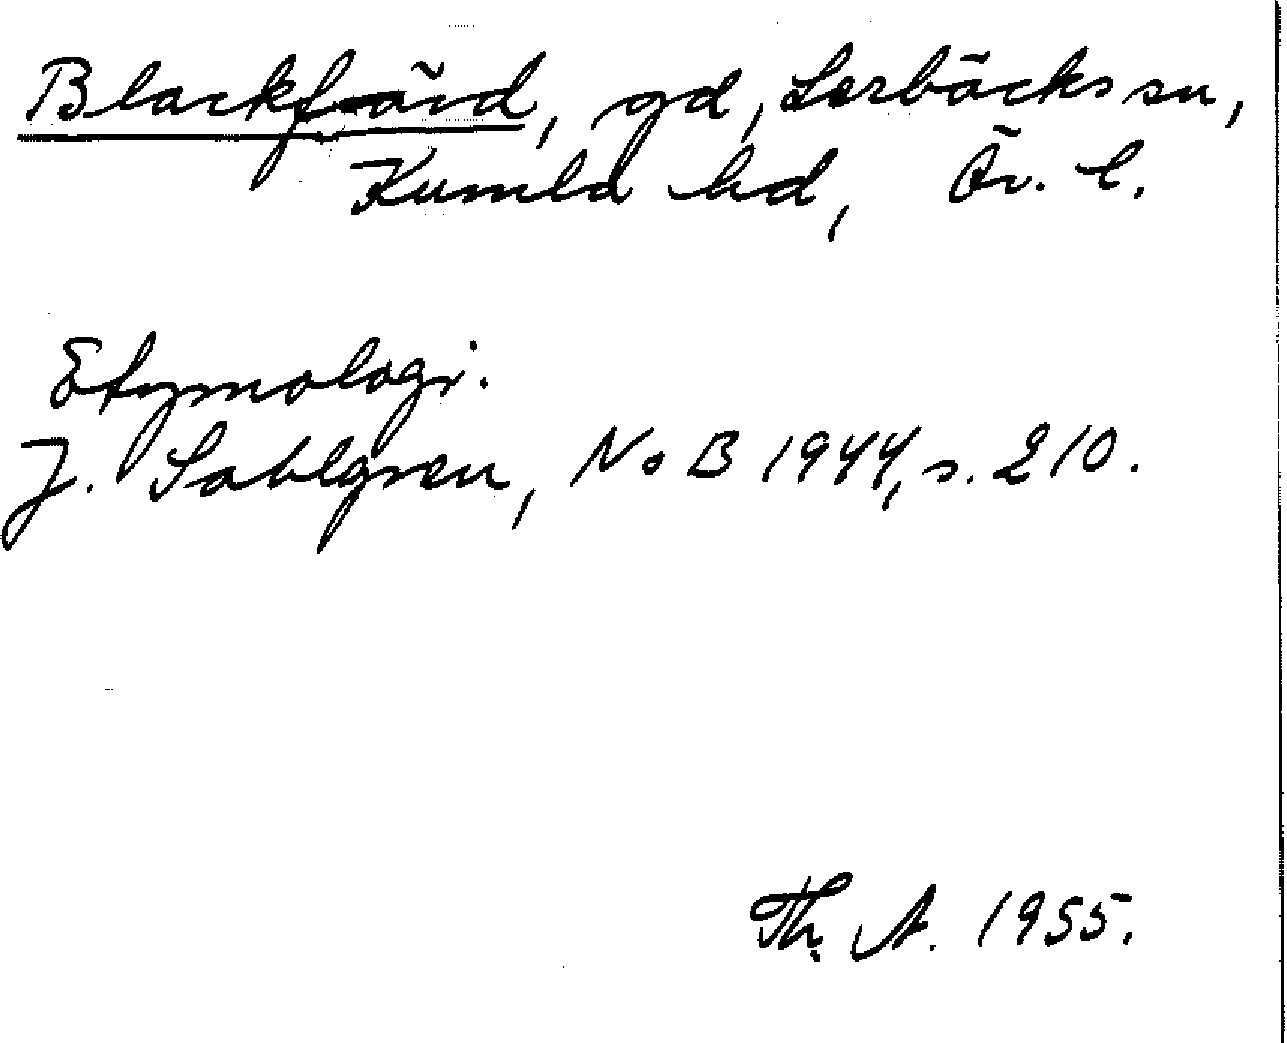 Blackfärd, gd, Lerbäcks sn,
Kumla hd, Ör. l.
Etymologi.
J. Sahlgren, NoB 1944, s. 210.
Th. A. 1955.